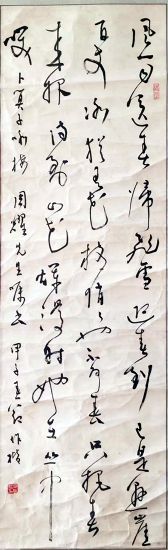 风雨送春歸飛雪迎春到已是悬崖
百丈冰犹有花枝俏俏也不争春只把春
来报待到山花烂漫时她在丛中
笑
卜算子咏梅 周耀先生嘱书 甲子春